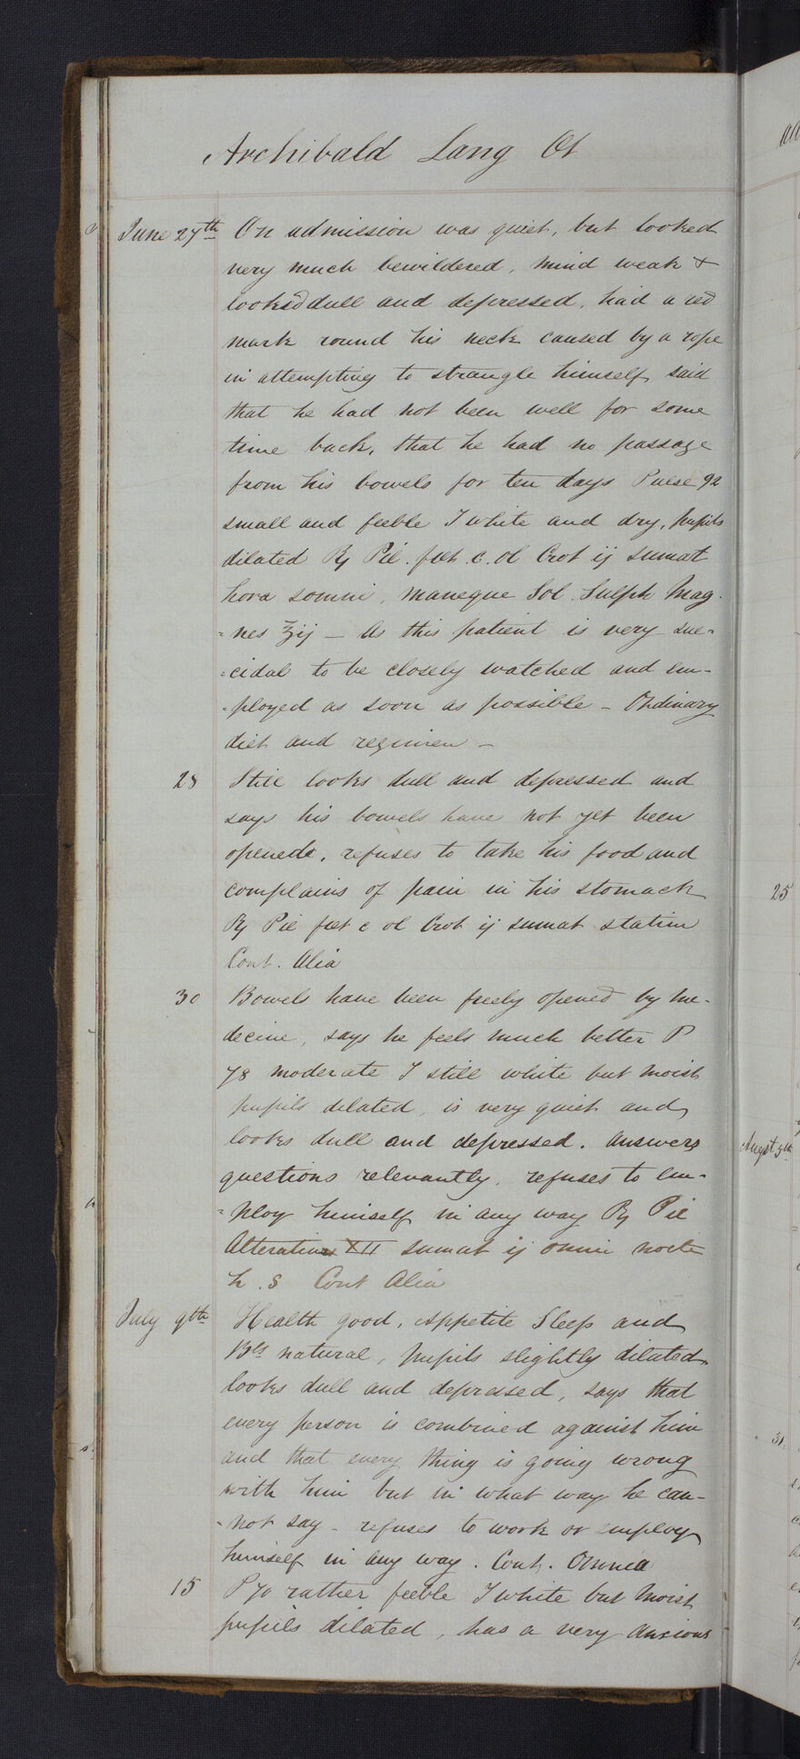 Archibald Lang Ct
June 27th On admission was quiet, but looked
very much bewildered, mind weak &
looked dull and depressed, had a red
mark round his neck caused by a rope
in attempting to strangle himself, said
that he had not been well for some
time back, that he had no passage
from his bowels for ten days Pulse 92
small and feeble T white and dry, pupils
dilated ℞ Pil. fæt. c. ol Crot ij sumat
hora somni, maneque Sol. Sulph Mag-
=nes ℥ij – As this patient is very sue-
=cidal to be closely watched and em-
-ployed as soon as possible – Ordinary
diet and regimen –
28 Still looks dull and depressed and
says his bowels have not yet been
opened, refuses to take his food and
complains of pain in his stomach
℞ Pil fæt c ol Crot ij sumat statim
Cont. Alia
30 Bowels have been freely opened by me-
decine, says he feels much better P
78 moderate T still white but moist
pupils dilated, is very quiet and
looks dull and depressed. answers
questions relevantly. refuses to em-
=ploy himself in any way ℞ Pil
Alterativ XII sumat ij omni nocte
h.s Cont Alia
July 9th Health good, Appetite Sleep and
Bls natural, pupils slightly dilated
looks dull and depressed, says that
every person is combined against him
and that every thing is going wrong
with him but in what way he can-
-not say – refuses to work or employ
himself in any way. Cont. Omnia
15 P 70 rather feeble T white but moist
pupils dilated, has a very anxious
25
Augst 5th
31